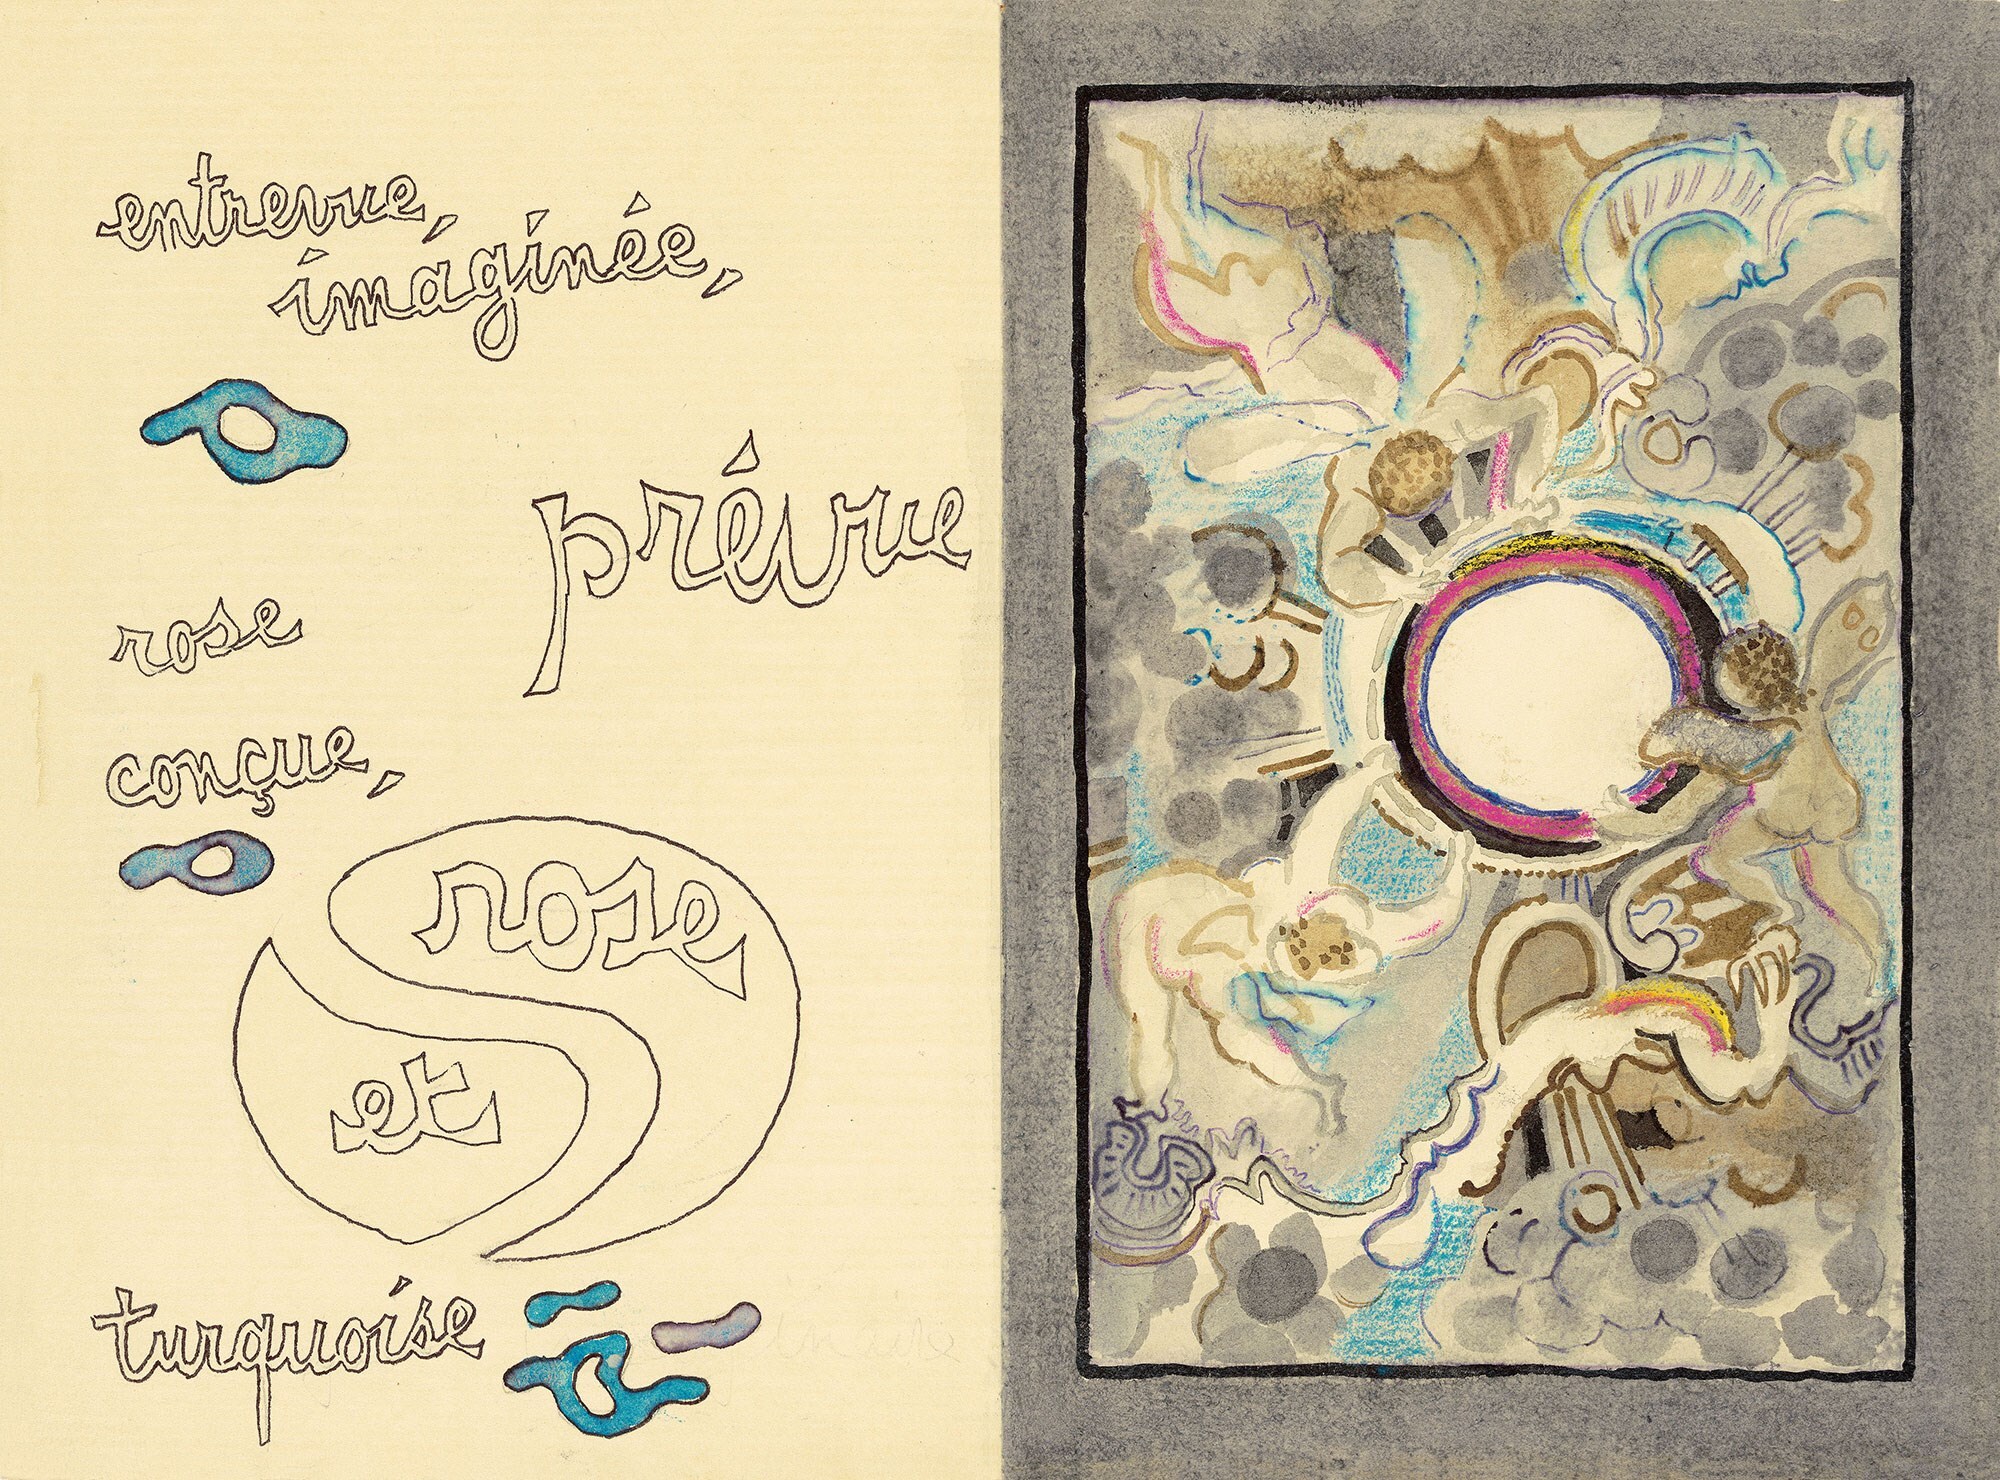 entrevue,
imaginée,
prévue
rose
conçue,
rose
et
turquoise